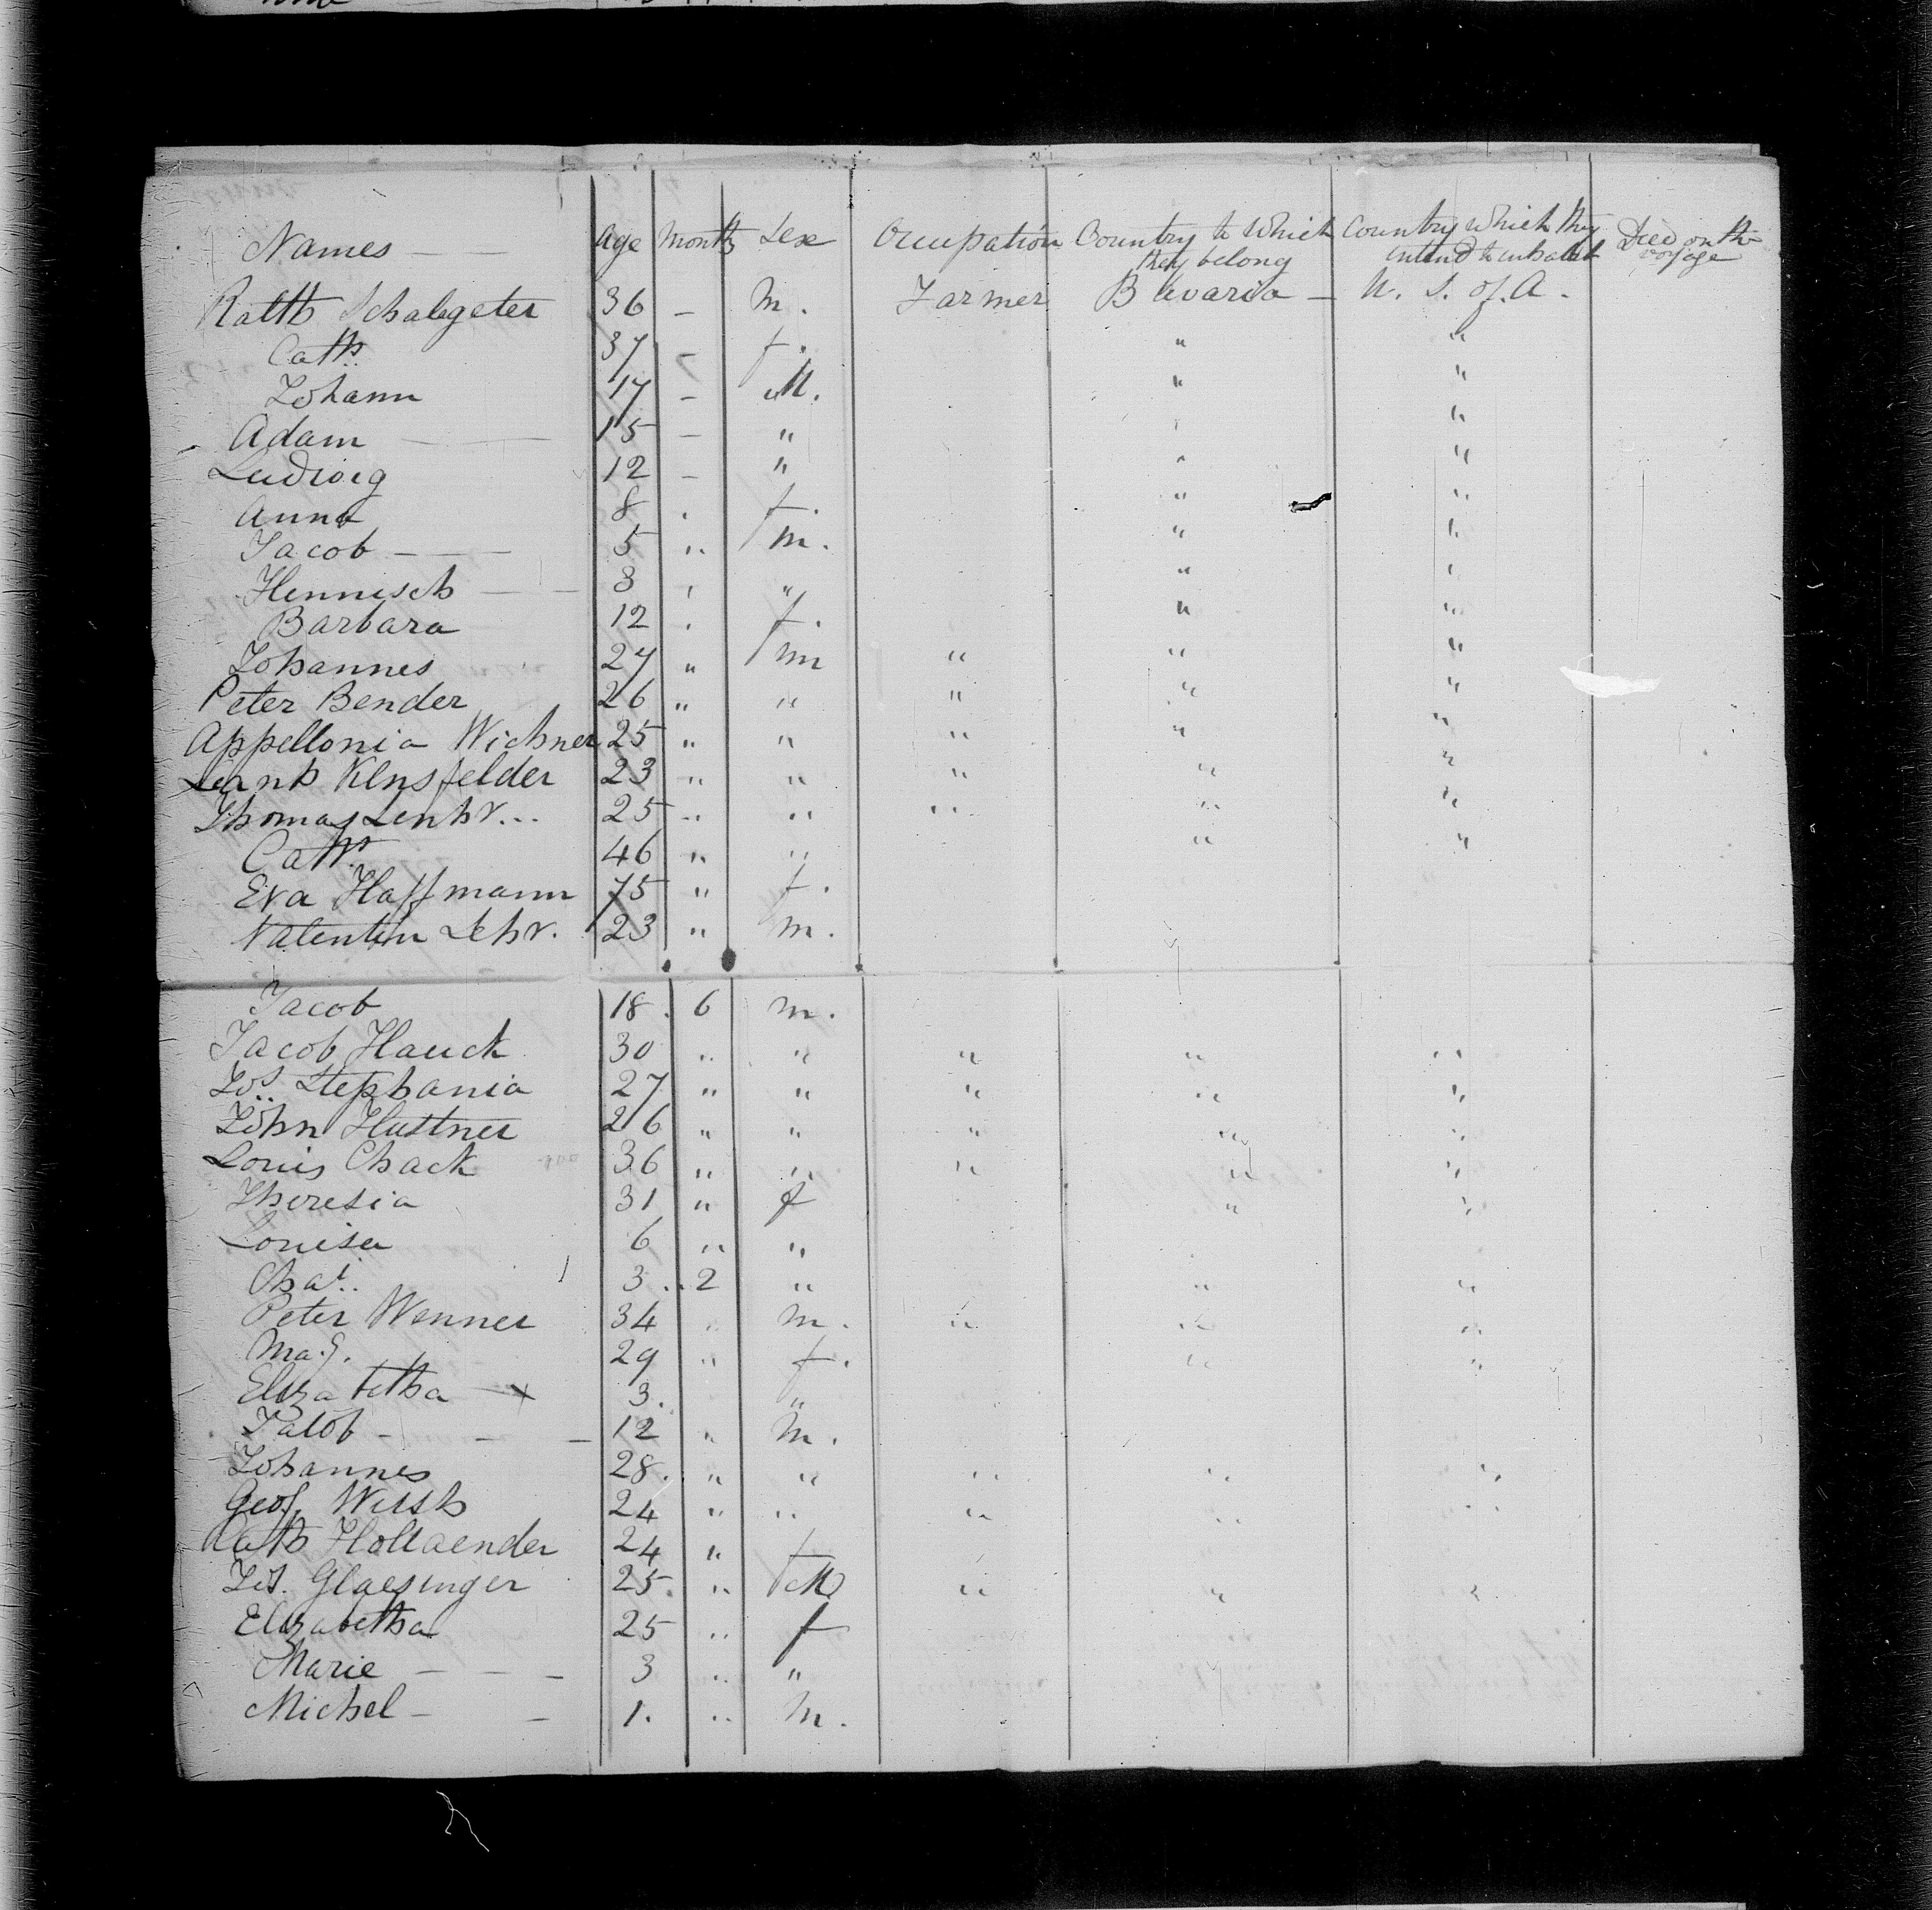 Names — — Age Months Sex Occupation Country to which they belong Country which they intend to inhabit Died on the voyage
Schalegeter 36 – m. Farmer Bavaria – U. S. of A.
Cath. 37 – f. " "
Johann 17 – M. " "
Adam — — 15 – " "
Ludwig 12 – " " "
Anna 8 . f. " "
Jacob — — — 5 " m. " "
Hennisch — — 3 " " " "
Barbara 12 . f. " "
Johannes 27 " m " " "
Peter Bender 26 " " " " "
Appellonia Wichner 25 " " " " "
Klnsfelder 23 " " " " "
Thomas Lenhr... 25 " " " " "
Cath 46 " " " "
Eva Haffmann 75 " f.
Valentin Lehr. 23 " m.
Jacob 18. 6 m.
Jacob Hauck 30 " " " " "
Jos. Stephania 27 " " " " "
John Huttner 26 " " " " "
Louis Chack 36 " " " " "
Theresia 31 " f " "
Louisa 6 " "
Chat.. 3. .. 2 " " "
Peter Wenner 34 " m. " " "
Mag. 29 " f. " "
Elizabetha — x 3. "
Jacob - - — 12 " m.
Johannes 28. " " " " "
Geo. Wersh 24 " " " " "
Cath Hollaender 24 " f
Jos. Glaesinger 25. " M " " "
Elizabetha 25 " f
Marie — — — 3 " "
Michel — — 1. " m.